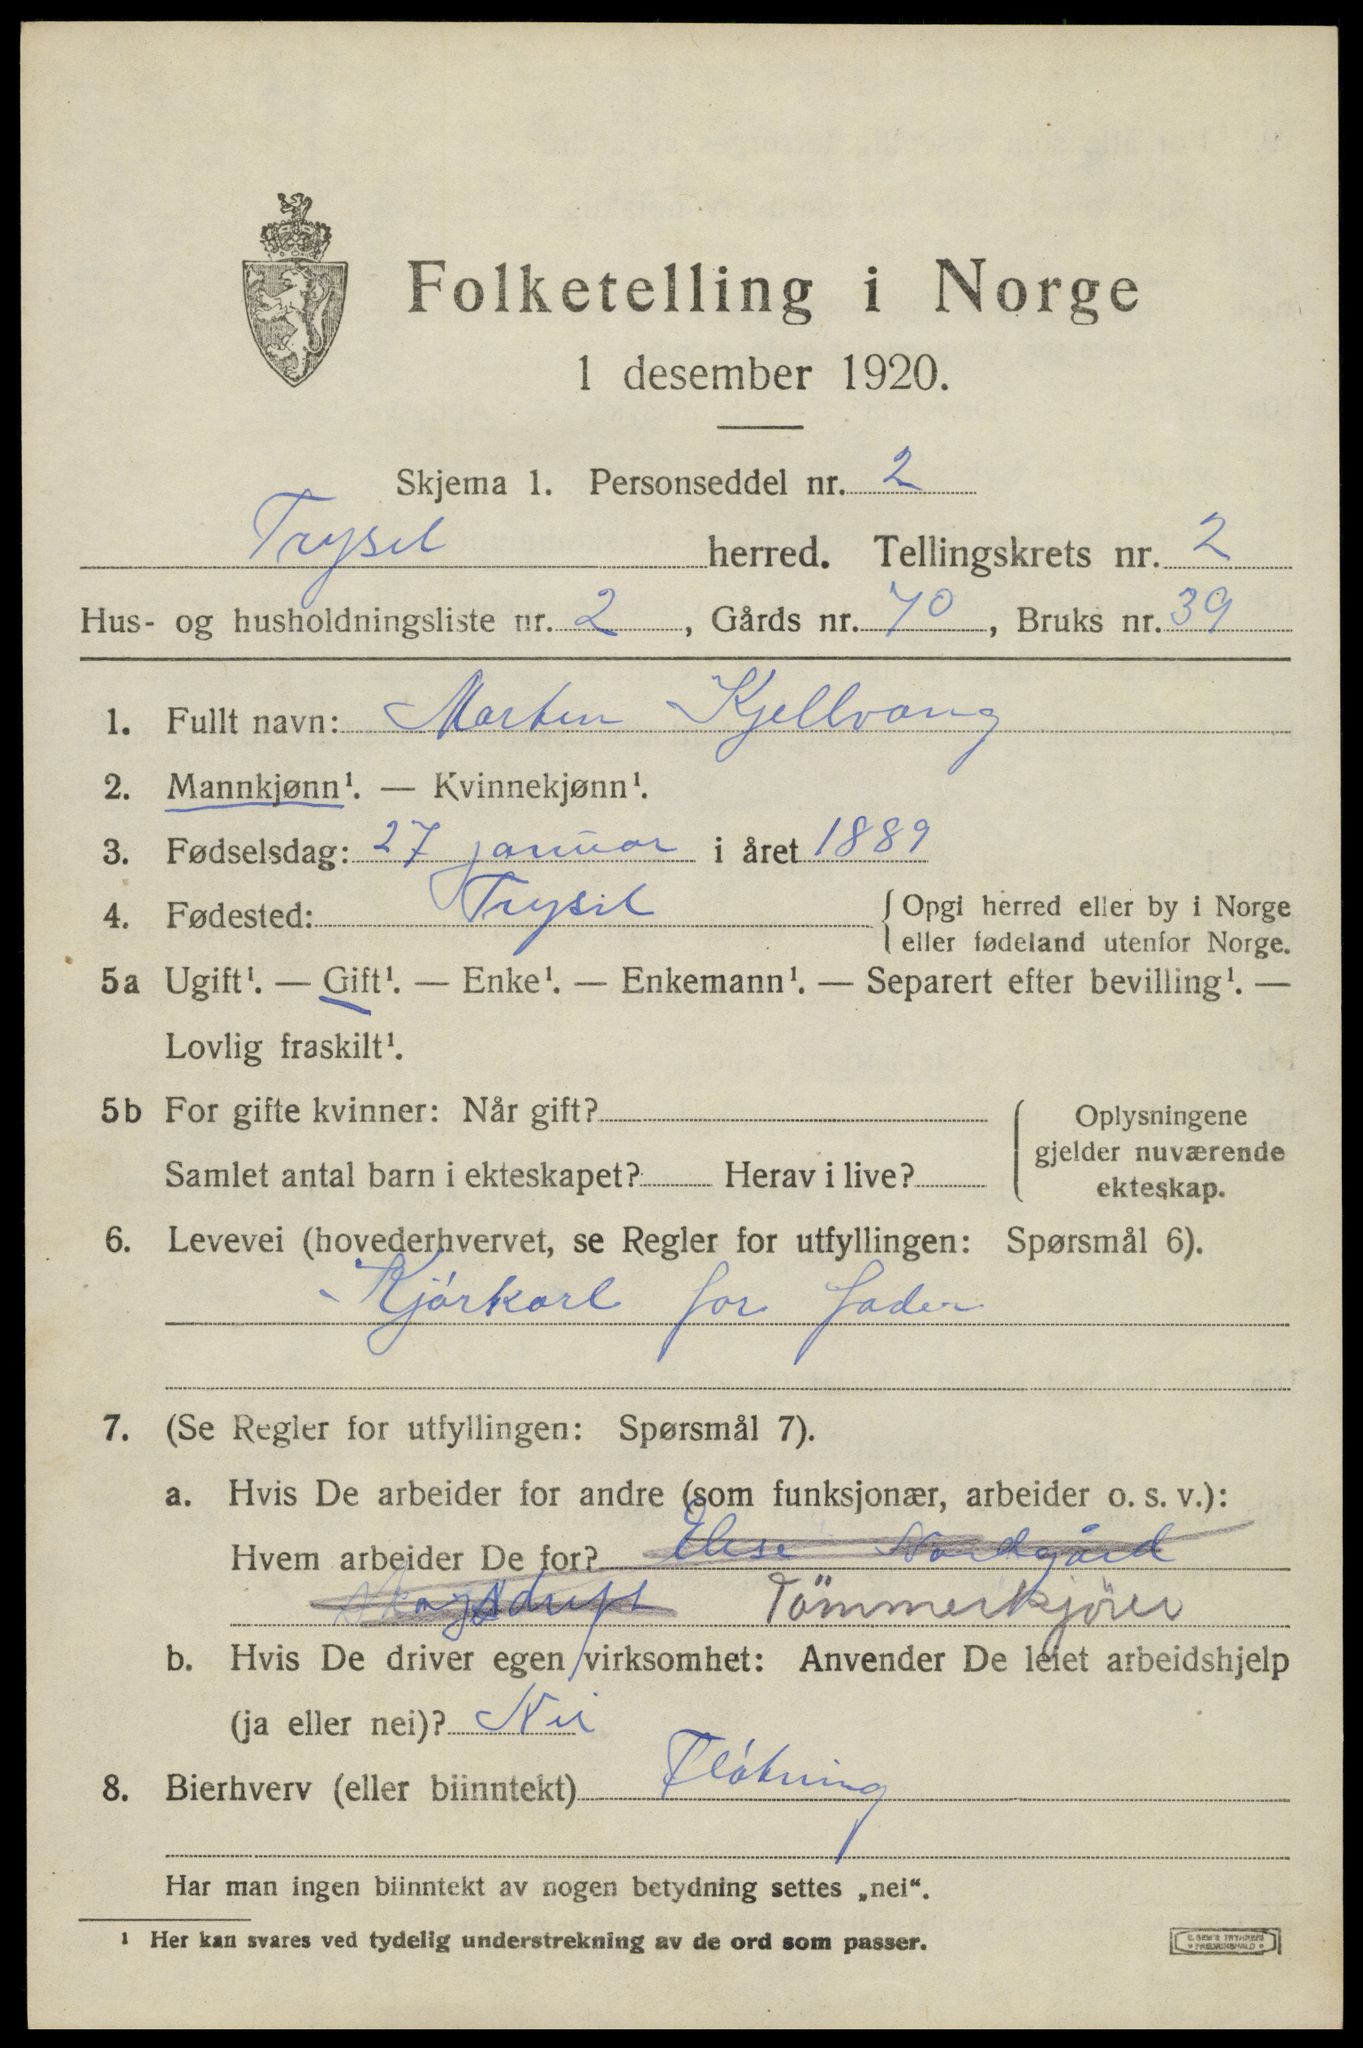 Folketelling i Norge
1 desember 1920.
Skjema 1. Personseddel nr. 2
Trysil herred. Tellingskrets nr. 2
Hus- og husholdningsliste nr. 2, Gårds nr. 70, Bruks nr. 39
1. Fullt navn: Marten Kjellvang
2. Mannkjønn¹. — Kvinnekjønn¹.
3. Fødselsdag: 27 januar i året 1889
4. Fødested: Trysil { Opgi herred eller by i Norge
eller fødeland utenfor Norge.
5a Ugift¹. — Gift¹. — Enke¹. — Enkemann¹. — Separert efter bevilling¹. —
Lovlig fraskilt¹.
5b For gifte kvinner: Når gift? Oplysningene
gjelder nuværende
Samlet antal barn i ekteskapet? Herav i live? ekteskap.
6. Levevei (hovederhvervet, se Regler for utfyllingen: Spørsmål 6).
Kjörkarl for fader
7. (Se Regler for utfyllingen: Spørsmål 7).
a. Hvis De arbeider for andre (som funksjonær, arbeider o. s. v.):
Hvem arbeider De for? Elise Nordgård
Skogsdrift Tömmerkjörer
b. Hvis De driver egen virksomhet: Anvender De leiet arbeidshjelp
(ja eller nei)? Nei
8. Bierhverv (eller biinntekt) Flötning
Har man ingen biinntekt av nogen betydning settes „nei“.
¹ Her kan svares ved tydelig understrekning av de ord som passer.